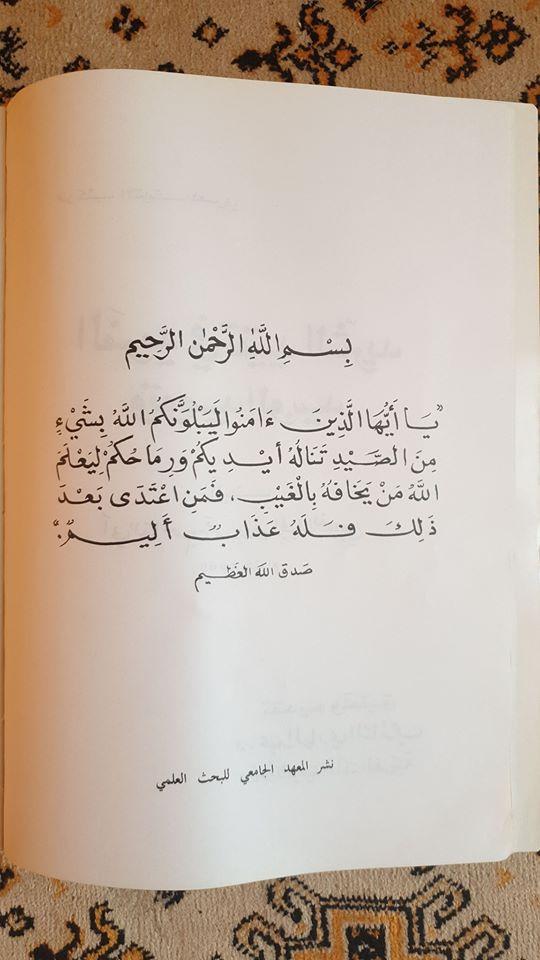 بِسْمِ اللَّهِ الرَّحْمٰنِ الرَّحِيمِ
"يَا أَيُّهَا الَّذِينَ ءَامَنُوا لَيَبْلُوَنَّكُمُ اللَّهُ بِشَيْءٍ
مِنَ الصَّيْدِ تَنَالُهُ أَيْدِيكُمْ وَرِمَاحُكُمْ لِيَعْلَمَ
اللَّهُ مَنْ يَخَافُهُ بِالْغَيْبِ، فَمَنِ اعْتَدَى بَعْدَ
ذَلِكَ فَلَهُ عَذَابٌ أَلِيمٌ."
صدق الله العظيم
نشر المعهد الجامعي للبحث العلمي